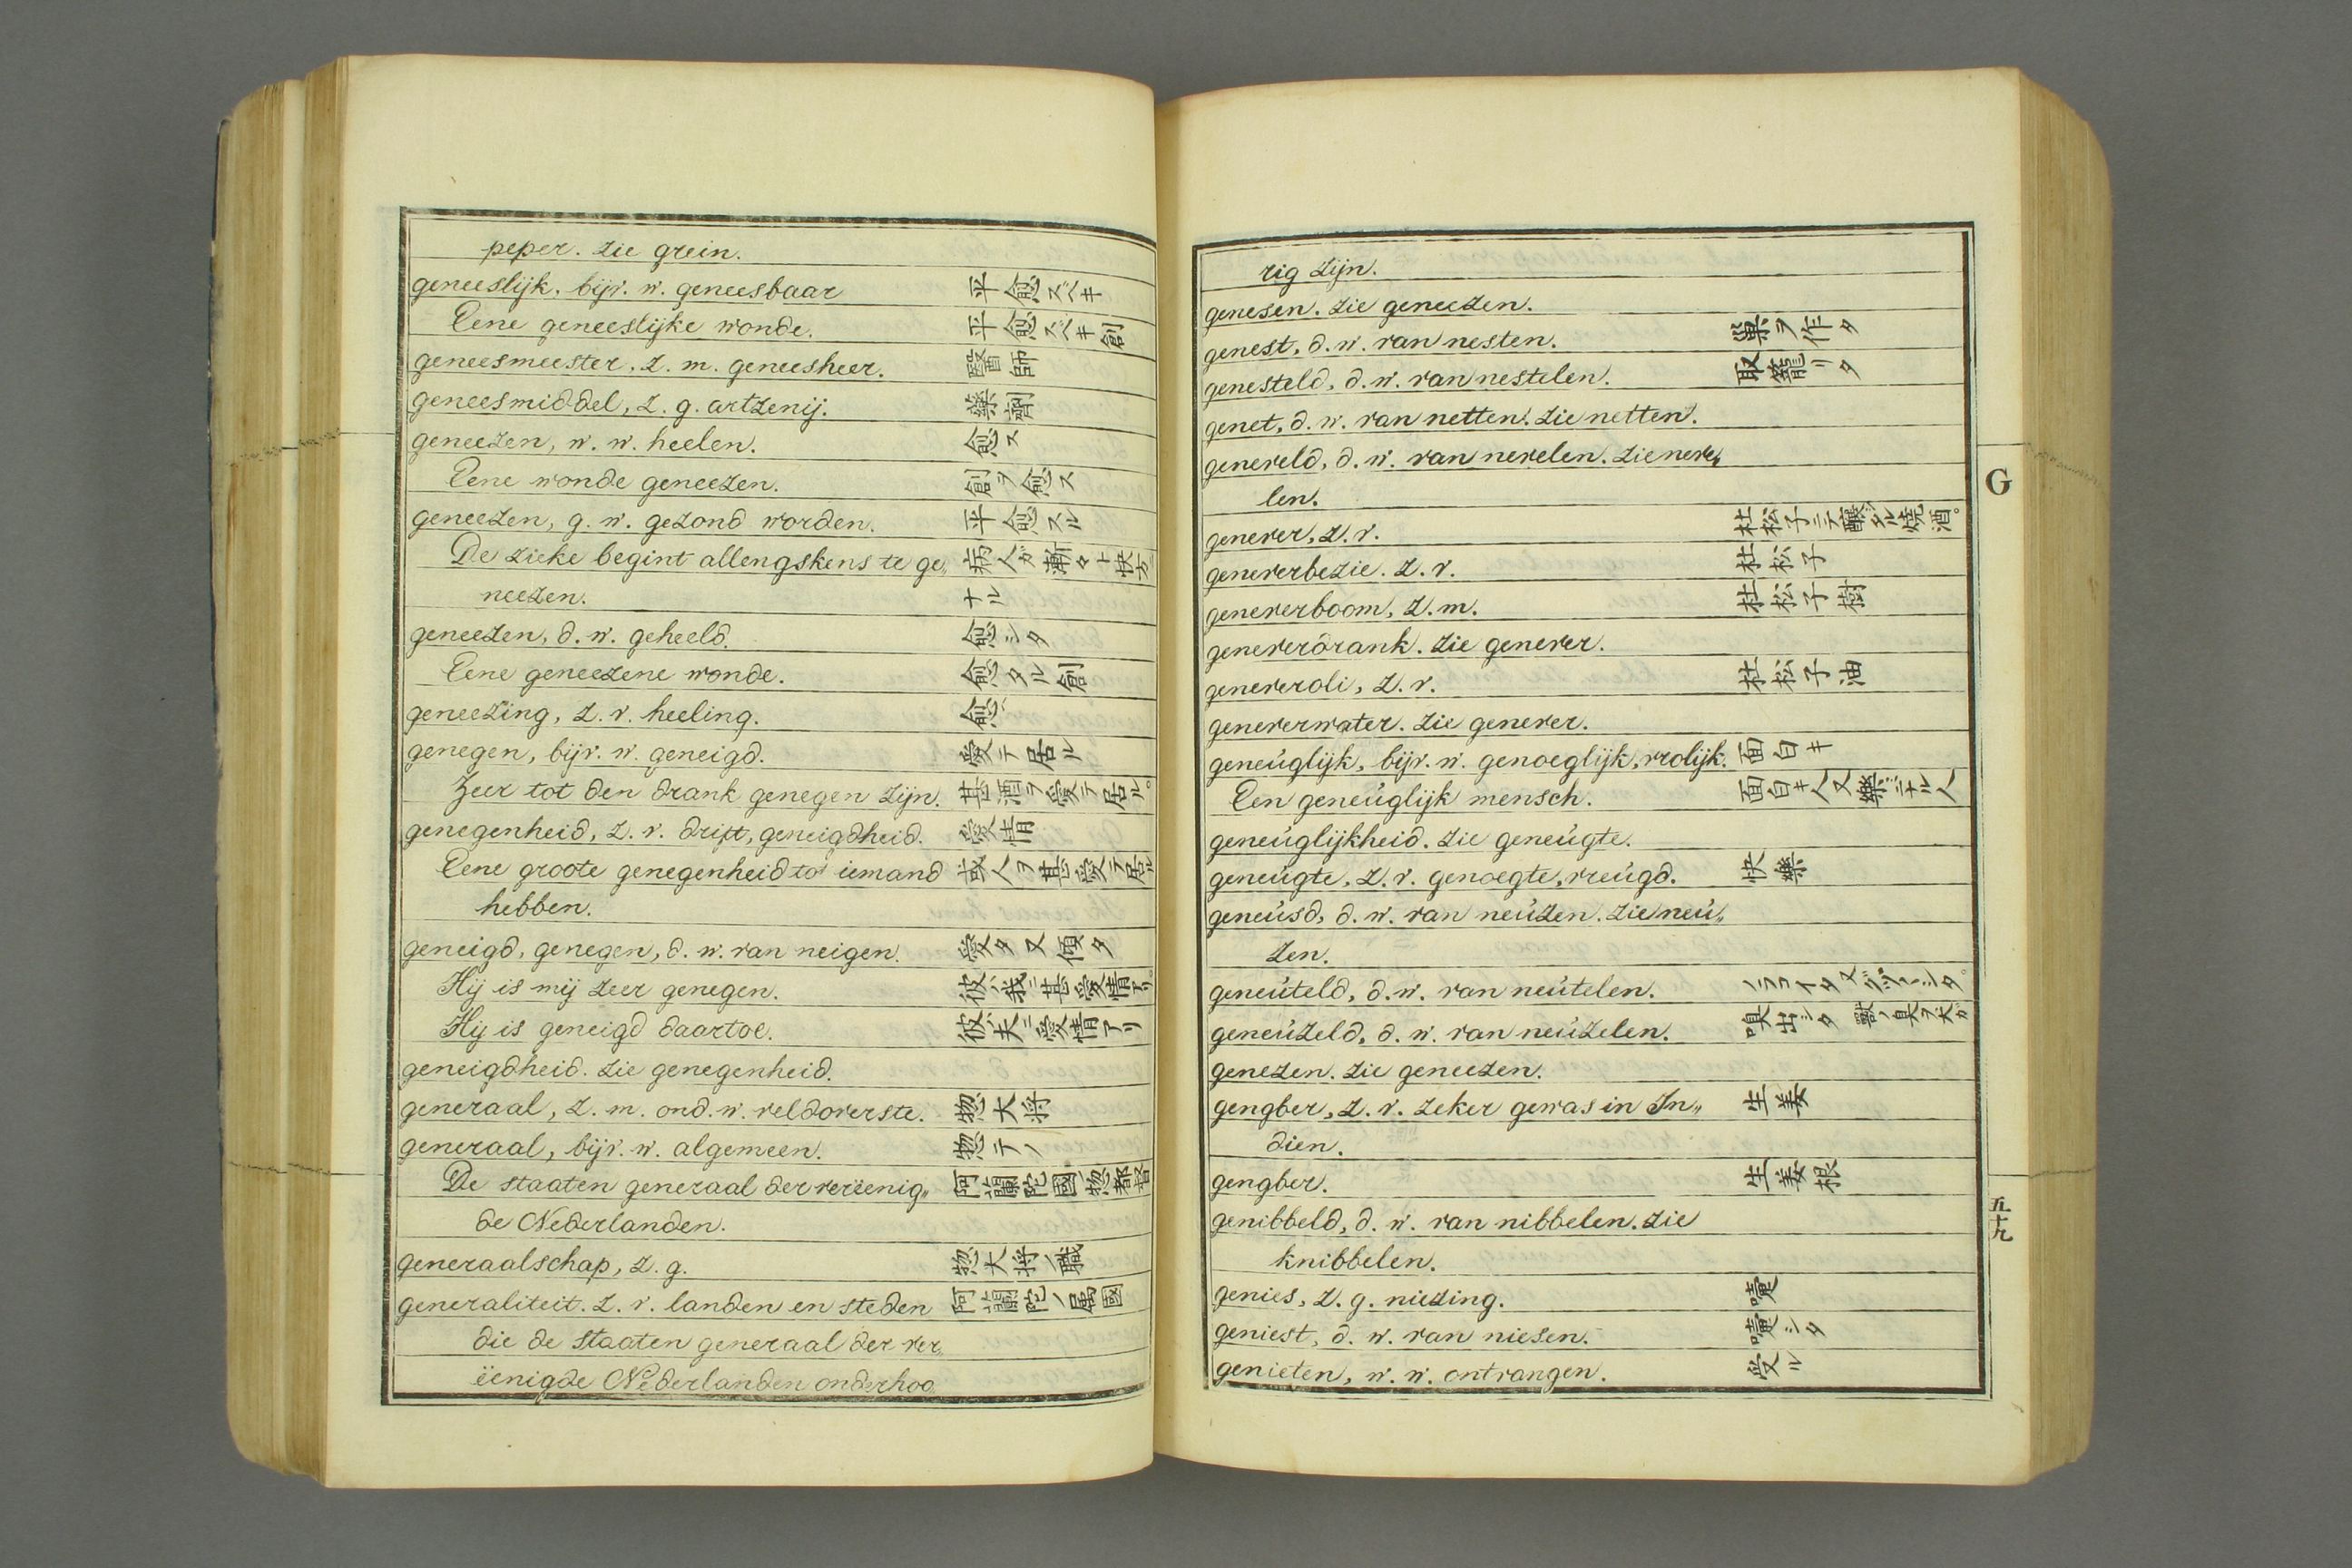 peper. zie grein.
geneeslijk, bijv. w. geneesbaar 平愈スベキ
Eene geneeslijke wonde. 平愈スベキ創
geneesmeester, z. m. geneesheer. 醫師
geneesmiddel, z. g. artzenij. 藥劑
geneezen, w. w. heelen. 愈ス
Eene wonde geneezen. 創ヲ愈ス
geneezen, g. w. gezond worden. 平愈スル
De zieke begint allengskens te ge„ 病人ガ漸々ト快方
neezen. ナル
geneezen, d. w. geheeld. 愈シタ
Eene geneezene wonde. 愈タル創
geneezing, z. v. heeling. 愈
genegen, bijv. w. geneigd. 愛テ居ル
Zeer tot den drank genegen zijn. 甚酒ヲ愛テ居ル。
genegenheid, z. v. drift, geneigdheid. 愛情
Eene groote genegenheid tot iemand 或人ヲ甚愛テ居ル
hebben.
geneigd, genegen, d. w. van neigen. 愛タ又傾タ
Hij is mij zeer genegen. 彼ハ我ニ甚愛情アリ。
Hij is geneigd daartoe. 彼ハ夫ニ愛情アリ
geneigdheid. zie genegenheid.
generaal, z. m. ond. w. veldoverste. 惣大将
generaal, bijv. w. algemeen. 惣テノ
De staaten generaal der vereenig„ 阿蘭陀國惣都督
de Nederlanden.
generaalschap, z. g. 惣大将ノ職
generaliteit. z. v. landen en steden 阿蘭陀ノ属國
die de staaten generaal der ver„
eenigde Nederlanden onderhoo
rig zijn.
genesen. zie geneezen.
genest, d. w. van nesten. 巣ヲ作タ
genesteld, d. w. van nestelen. 取籠リタ
genet, d. w. van netten. zie netten.
geneveld, d. w. van nevelen. zie neve„
len.
genever, z. v. 杜松子ニテ醸シタル焼酒。
geneverbezie. z. v. 杜松子
geneverboom, z. m. 杜松子樹
geneverdrank. zie genever.
geneveroli, z. v. 杜松子油
geneverwater. zie genever.
geneúglijk, bijv. w. genoeglijk, vrolijk. 面白キ
Een geneúglijk mensch. 面白キ人又樂ミナル人
geneúglijkheid. zie geneúgte.
geneúgte, z. v. genoegte, vreúgd. 快樂
geneúsd, d. w. van neúzen. zie neú„
zen.
geneúteld, d. w. van neútelen.
geneúzeld, d. w. van neúzelen. 嗅出シタ
genezen. zie geneezen.
gengber, z. v. zeker gewas in In„ 生姜
dien.
gengber. 生姜根
genibbeld, d. w. van nibbelen. zie
knibbelen.
genies, z. g. niezing. 嚏
geniest, d. w. van niesen. 嚏シタ
genieten, w. w. ontvangen. 受ル
G
五十九